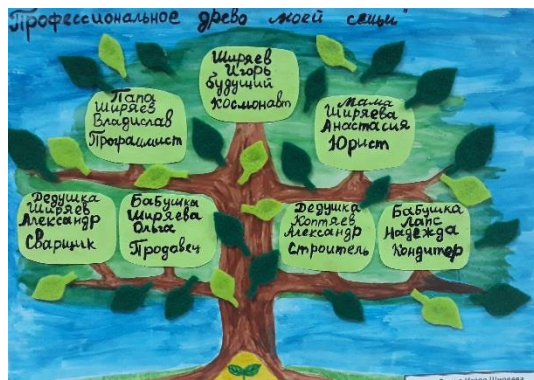 Профессиональное древо моей семьи"
Ширяев
Игорь
будущий
космонавт
Папа
Ширяев
Владислав
Программист
Мама
Ширяева
Анастасия
Юрист
Дедушка
Ширяев
Александр
Сварщик
Бабушка
Ширяева
Ольга
Продавец
Дедушка
Коптяев
Александр
Строитель
Бабушка
Лапс
Надежда
Кондитер